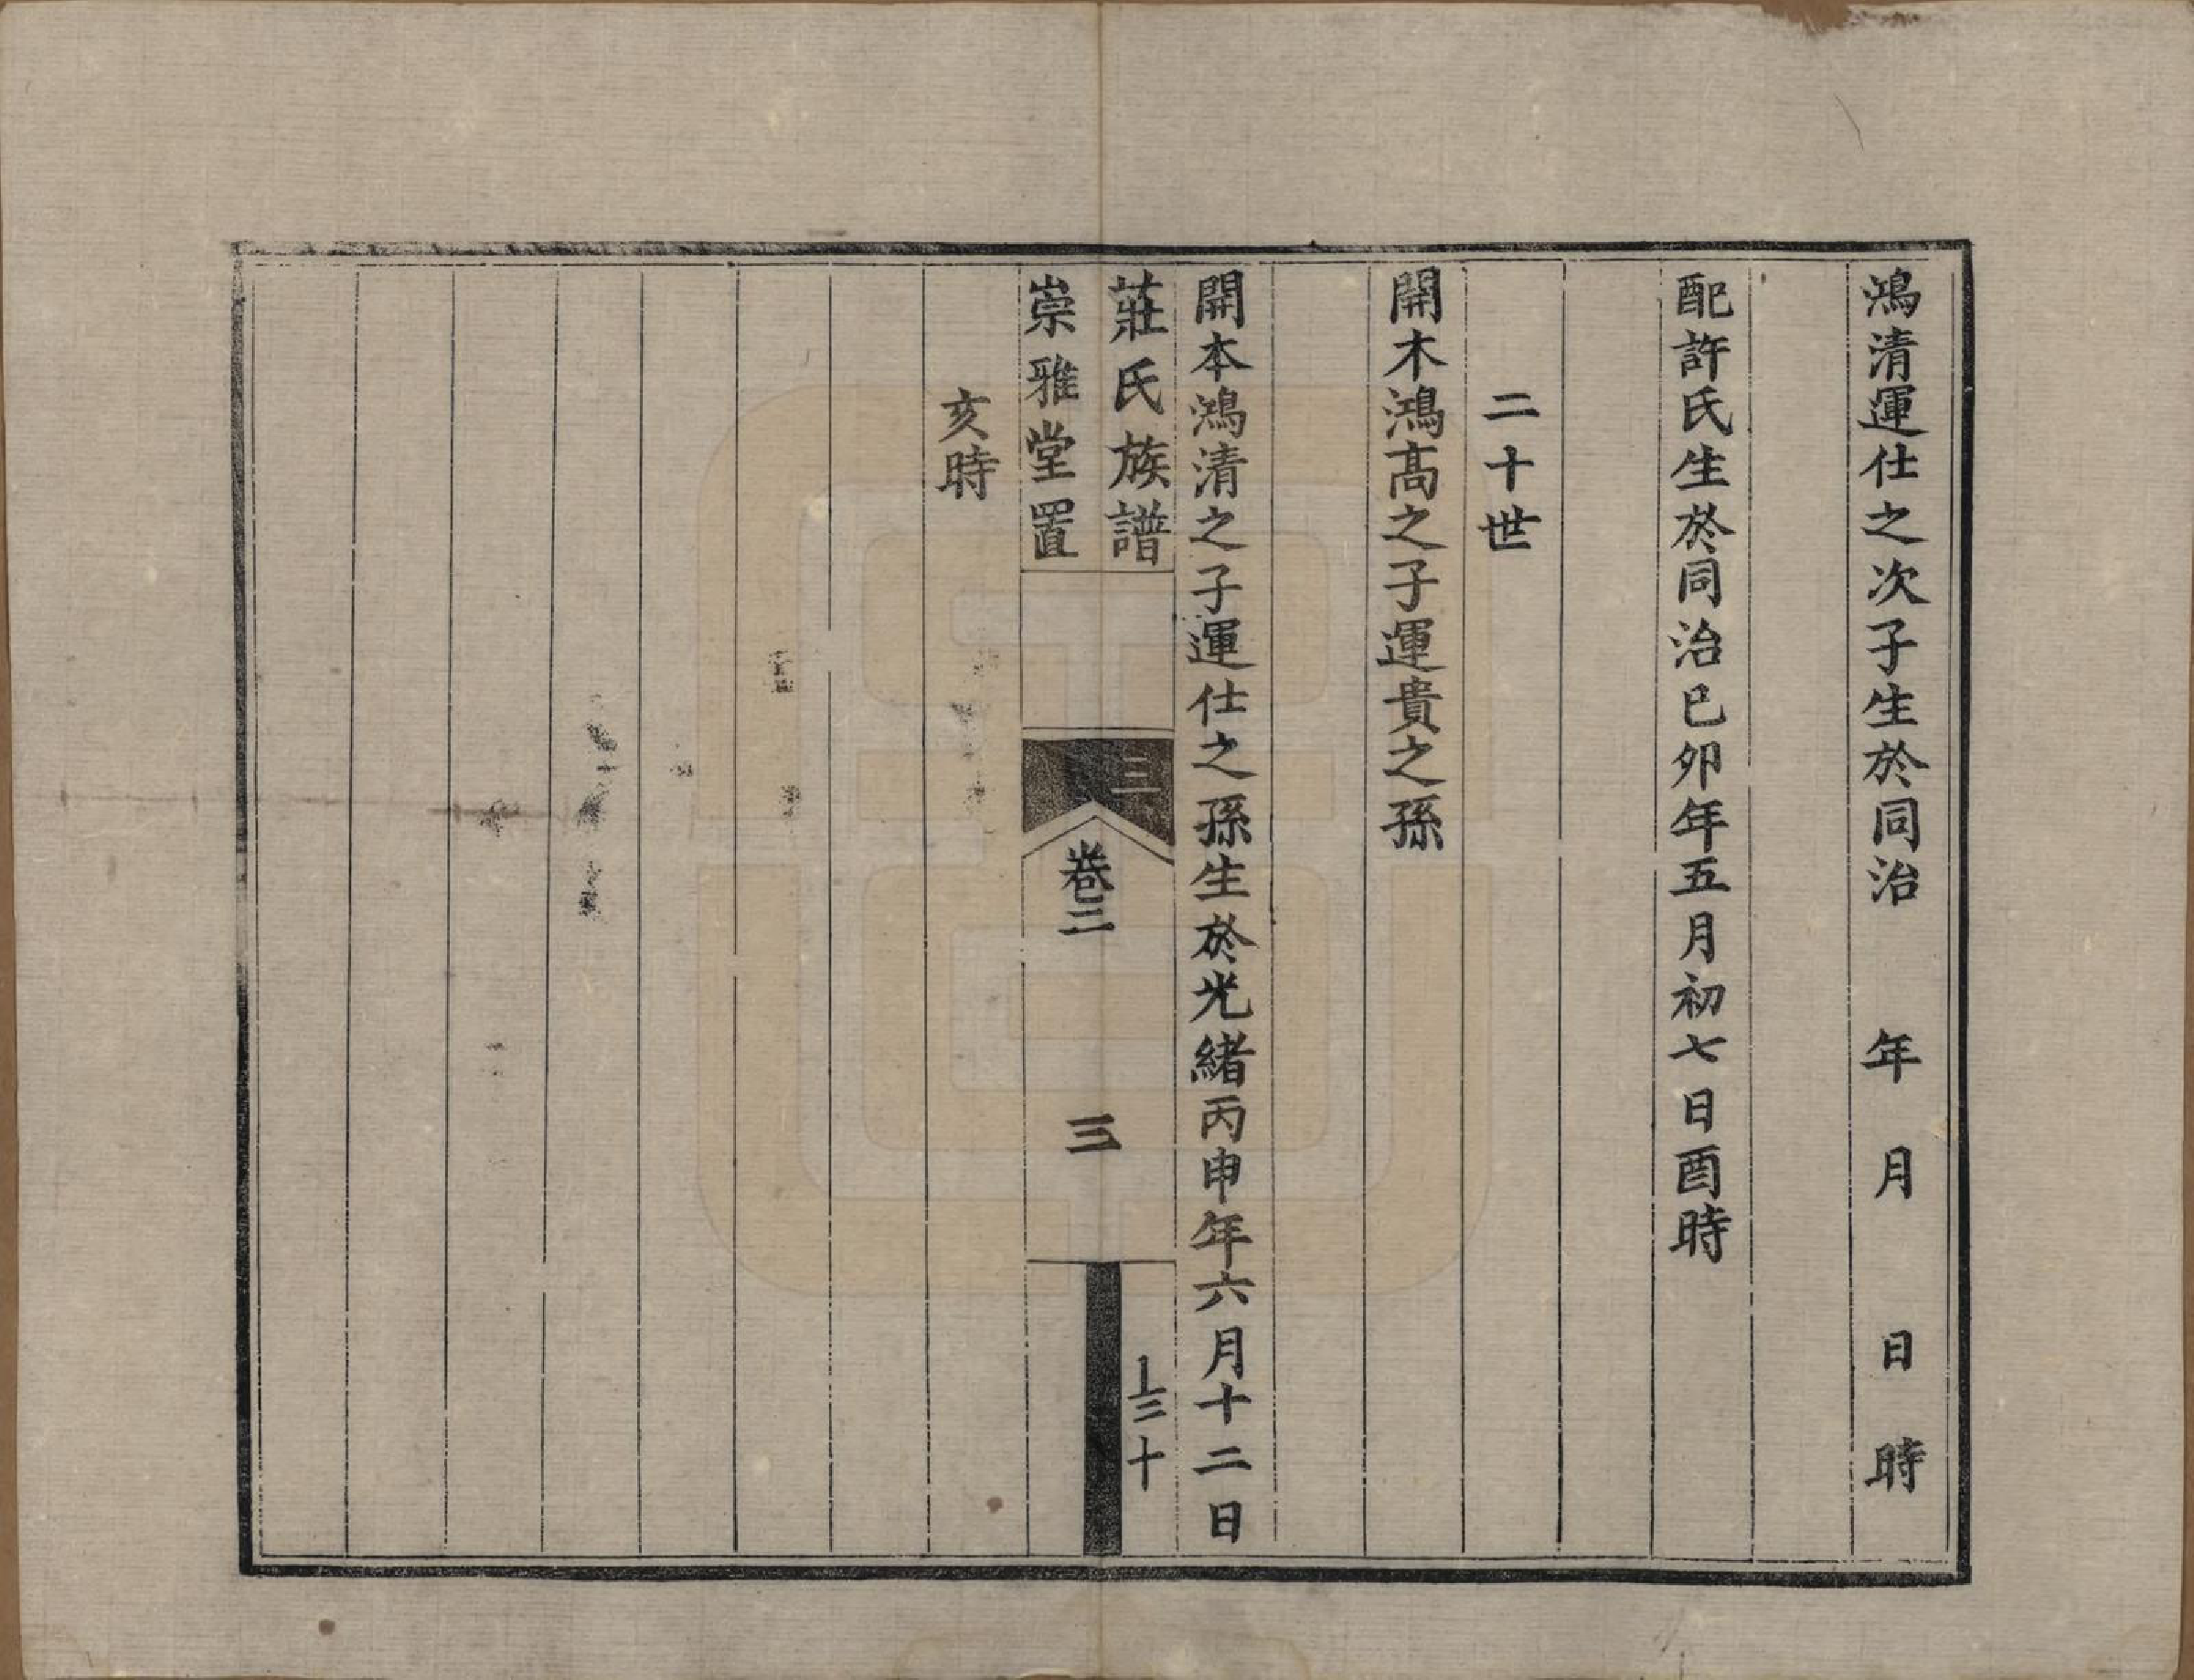 鴻清運仕之次子生於同治　年　月　日　時
配許氏生於同治巳卯年五月初七日酉時
二十世
開木鴻高之子運貴之孫
開本鴻清之子運仕之孫生於光緒丙申年六月十二日
莊氏族譜
崇雅堂置
三
卷二
三
上三十
亥時